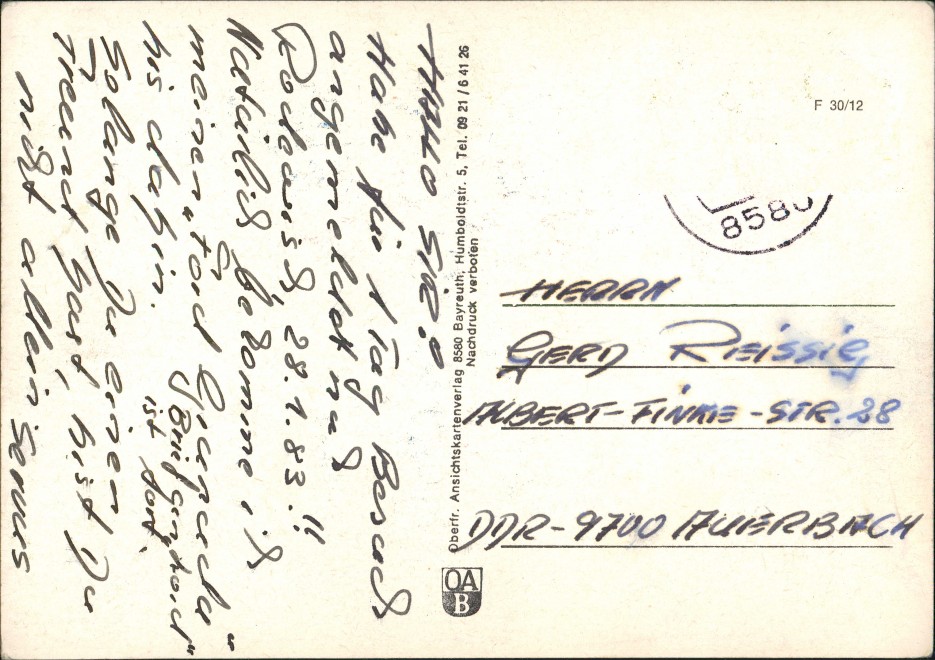 HALLO SIE.
Habe für 1 Tag Besuch
angemeldet nach
Rodewisch, 28.1.83.!!
Natürlich bekomme ich
meinen "Ford Granada"
bis dahin.
"Brief an Ford"
ist fort.
Solange Du einen
Freund hast, bist Du
nicht allein Servus
Oberfr. Ansichtskartenverlag 8580 Bayreuth, Humboldtstr. 5, Tel. 09 21 / 6 41 26
Nachdruck verboten
F 30/12
8580
HERRN
GERD REISSIG
ALBERT-FINKE-STR. 28
DDR-9700 AUERBACH
OA
B